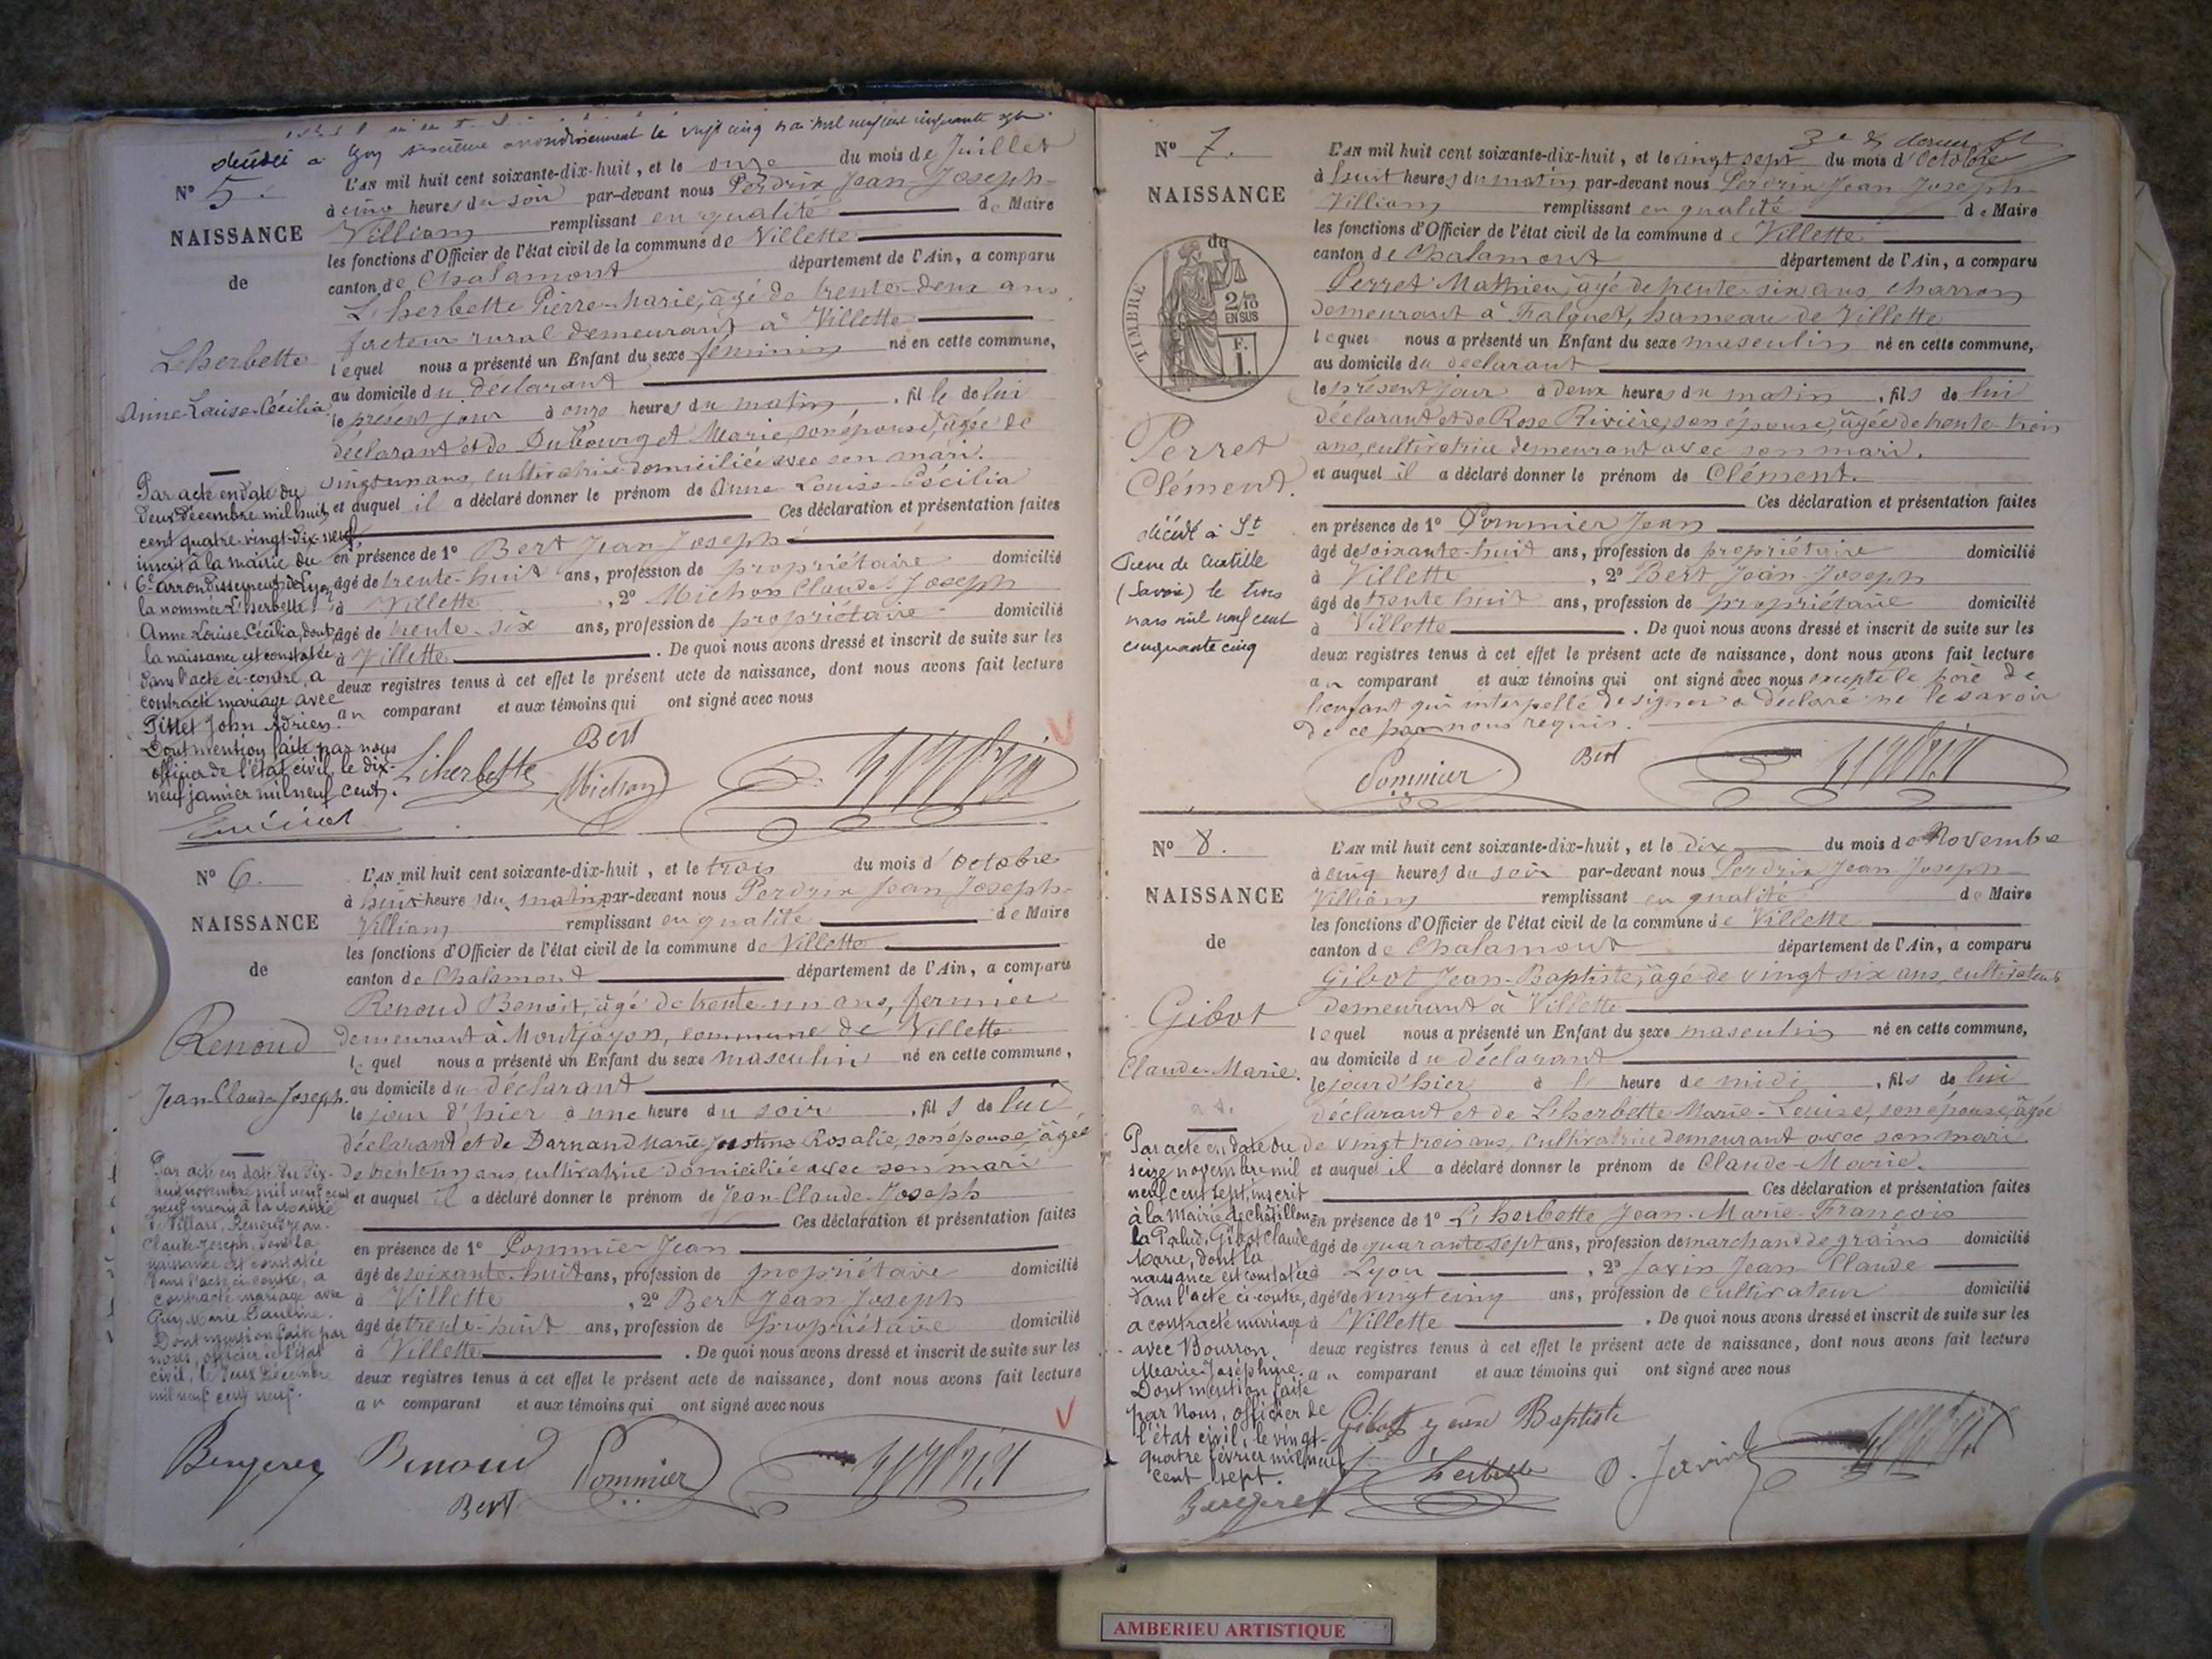 décédée à Lyon arrondissement le vingt cinq mai mil neuf cent cinquante
N° 5.
NAISSANCE
de
Lherbette
Anne-Louise-Cécilia
Par acte en date du
deux décembre mil huit
cent quatre-vingt-dix-neuf,
inscrit à la mairie du
6e arrondissement de Lyon,
la nommée Lherbette
Anne Louise Cécilia, dont
la naissance est constatée
dans l'acte ci-contre, a
contracté mariage avec
Pittet John Adrien.
Dont mention faite par nous
officier de l'état civil, le dix-
neuf janvier mil neuf cent.
L'AN mil huit cent soixante-dix-huit, et le onze du mois de Juillet
à cinq heures du soir par-devant nous Perdrix Jean Joseph-
Villiam remplissant en qualité de Maire
les fonctions d'Officier de l'état civil de la commune de Villette
canton de Chalamont département de l'Ain, a comparu
Lherbette Pierre-Marie, âgé de trente-deux ans
facteur rural demeurant à Villette
lequel nous a présenté un Enfant du sexe féminin né en cette commune,
au domicile du déclarant
le présent jour à onze heures du matin, fille de lui
déclarant et de Dubourget Marie, son épouse, âgée de
vingt un ans, cultivatrice domiciliée avec son mari.
et auquel il a déclaré donner le prénom de Anne Louise-Cécilia
Ces déclaration et présentation faites
en présence de 1° Bert Jean-Joseph
âgé de trente-huit ans, profession de propriétaire domicilié
à Villette, 2° Michon Claude-Joseph
âgé de trente-six ans, profession de propriétaire domicilié
à Villette. De quoi nous avons dressé et inscrit de suite sur les
deux registres tenus à cet effet le présent acte de naissance, dont nous avons fait lecture
au comparant et aux témoins qui ont signé avec nous
Bert
Lherbette Michon
N° 6.
NAISSANCE
de
Renoud
Jean-Claude-Joseph.
Par acte en date du dix-
novembre mil neuf cent
neuf inscrit à la Mairie
de Villars, Renoud Jean-
Claude-Joseph, dont la
naissance est constatée
dans l'acte ci-contre, a
contracté mariage avec
Guy Marie Pauline.
Dont mention faite par
nous, officier de l'état
civil, le deux Décembre
mil neuf cent neuf.
L'AN mil huit cent soixante-dix-huit, et le trois du mois d'Octobre
à huit heures du matin par-devant nous Perdrix Jean Joseph-
Villiam remplissant en qualité de Maire
les fonctions d'Officier de l'état civil de la commune de Villette
canton de Chalamont département de l'Ain, a comparu
Renoud Benoit, âgé de trente-un ans, fermier
demeurant à Montjayon, commune de Villette
lequel nous a présenté un Enfant du sexe masculin né en cette commune,
au domicile du déclarant
le jour d'hier à une heure du soir, fils de lui
déclarant et de Darnand Marie-Justine Rosalie, son épouse, âgée
de trente un ans cultivatrice domiciliée avec son mari
et auquel il a déclaré donner le prénom de Jean-Claude-Joseph
Ces déclaration et présentation faites
en présence de 1° Pommier Jean
âgé de soixante-huit ans, profession de propriétaire domicilié
à Villette, 2° Bert Jean Joseph
âgé de trente-huit ans, profession de propriétaire domicilié
à Villette. De quoi nous avons dressé et inscrit de suite sur les
deux registres tenus à cet effet le présent acte de naissance, dont nous avons fait lecture
au comparant et aux témoins qui ont signé avec nous
Renoud Pommier
Bert
3e & dernier
N° 7.
NAISSANCE
de
TIMBRE
2/10
EN SUS
F.
1.
Perret
Clément.
décédé à St
Pierre de
(Savoie) le trois
mars mil neuf cent
cinquante cinq
L'AN mil huit cent soixante-dix-huit, et le vingt sept du mois d'Octobre
à huit heures du matin par-devant nous Perdrix Jean Joseph
Villiam remplissant en qualité de Maire
les fonctions d'Officier de l'état civil de la commune de Villette
canton de Chalamont département de l'Ain, a comparu
Perret Mathieu, âgé de trente-six ans, charron
demeurant à Falquet, hameau de Villette
lequel nous a présenté un Enfant du sexe masculin né en cette commune,
au domicile du déclarant
le présent jour à deux heures du matin, fils de lui
déclarant et de Rose Rivière, son épouse, âgée de trente-trois
ans, cultivatrice demeurant avec son mari.
et auquel il a déclaré donner le prénom de Clément.
Ces déclaration et présentation faites
en présence de 1° Pommier Jean
âgé de soixante-huit ans, profession de propriétaire domicilié
à Villette, 2° Bert Jean Joseph
âgé de trente huit ans, profession de propriétaire domicilié
à Villette. De quoi nous avons dressé et inscrit de suite sur les
deux registres tenus à cet effet le présent acte de naissance, dont nous avons fait lecture
au comparant et aux témoins qui ont signé avec nous excepté le père de
l'enfant qui interpellé de signer a déclaré ne le savoir
de ce par nous requis.
Pommier Bert
N° 8.
NAISSANCE
de
Gibot
Claude-Marie.
Par acte en date du
seize novembre mil
neuf cent sept, inscrit
à la Mairie de Châtillon
la Palud, Gibot Claude
Marie, dont la
naissance est constatée
dans l'acte ci-contre,
a contracté mariage
avec Bourron
Marie-Joséphine.
Dont mention faite
par Nous, officier de
l'état civil, le vingt-
quatre février mil neuf
cent sept.
L'AN mil huit cent soixante-dix-huit, et le dix du mois de Novembre
à cinq heures du soir par-devant nous Perdrix Jean Joseph
Villiam remplissant en qualité de Maire
les fonctions d'Officier de l'état civil de la commune de Villette
canton de Chalamont département de l'Ain, a comparu
Gibot Jean-Baptiste, âgé de vingt six ans, cultivateur
demeurant à Villette
lequel nous a présenté un Enfant du sexe masculin né en cette commune,
au domicile du déclarant
le jour d'hier à l' heure de midi, fils de lui
déclarant et de Lherbette Marie-Louise, son épouse, âgée
de vingt trois ans, cultivatrice demeurant avec son mari
et auquel il a déclaré donner le prénom de Claude-Marie.
Ces déclaration et présentation faites
en présence de 1° Lherbette Jean-Marie-François
âgé de quarante-sept ans, profession de marchand de grains domicilié
à Lyon, 2° Javin Jean Claude
âgé de vingt cinq ans, profession de cultivateur domicilié
à Villette. De quoi nous avons dressé et inscrit de suite sur les
deux registres tenus à cet effet le présent acte de naissance, dont nous avons fait lecture
au comparant et aux témoins qui ont signé avec nous
Gibot Jean Baptiste
Lherbette
AMBERIEU ARTISTIQUE